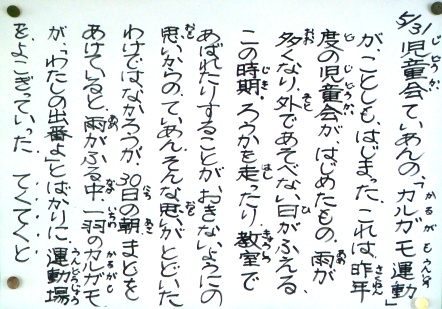 5/31児童会ていあんの、「カルガモ運動」
が、ことしも、はじまった。これは、昨年
度の児童会が、はじめたもの。雨が
多くなり、外であそべない日がふえる、
この時期。ろうかを走ったり、教室で
あばれたりすることが、おきないようにの
思いからのていあん。そんな思いがとどいた
わけでは、なかろうが、30日の朝、まどを
あけていると、雨がふる中、一羽のカルガモ
が、「わたしの出番よ」とばかりに、運動場
を、よこぎっていった。てくてくと